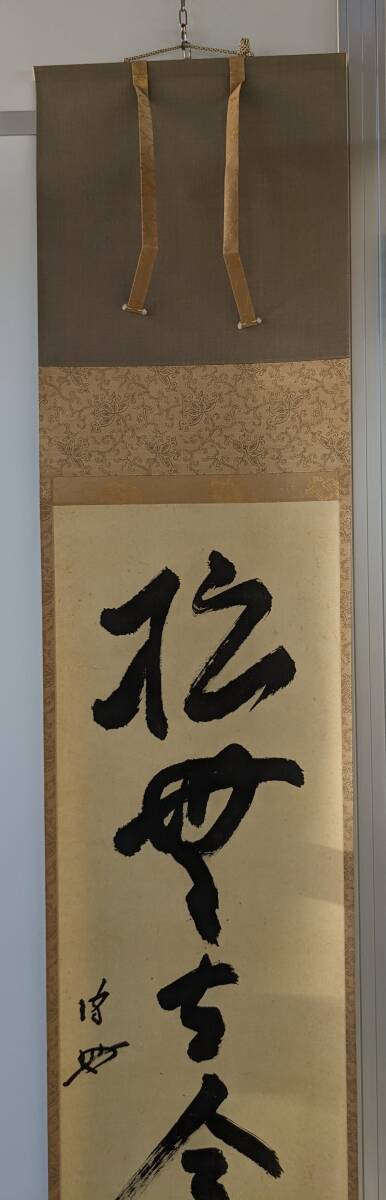 松無古今